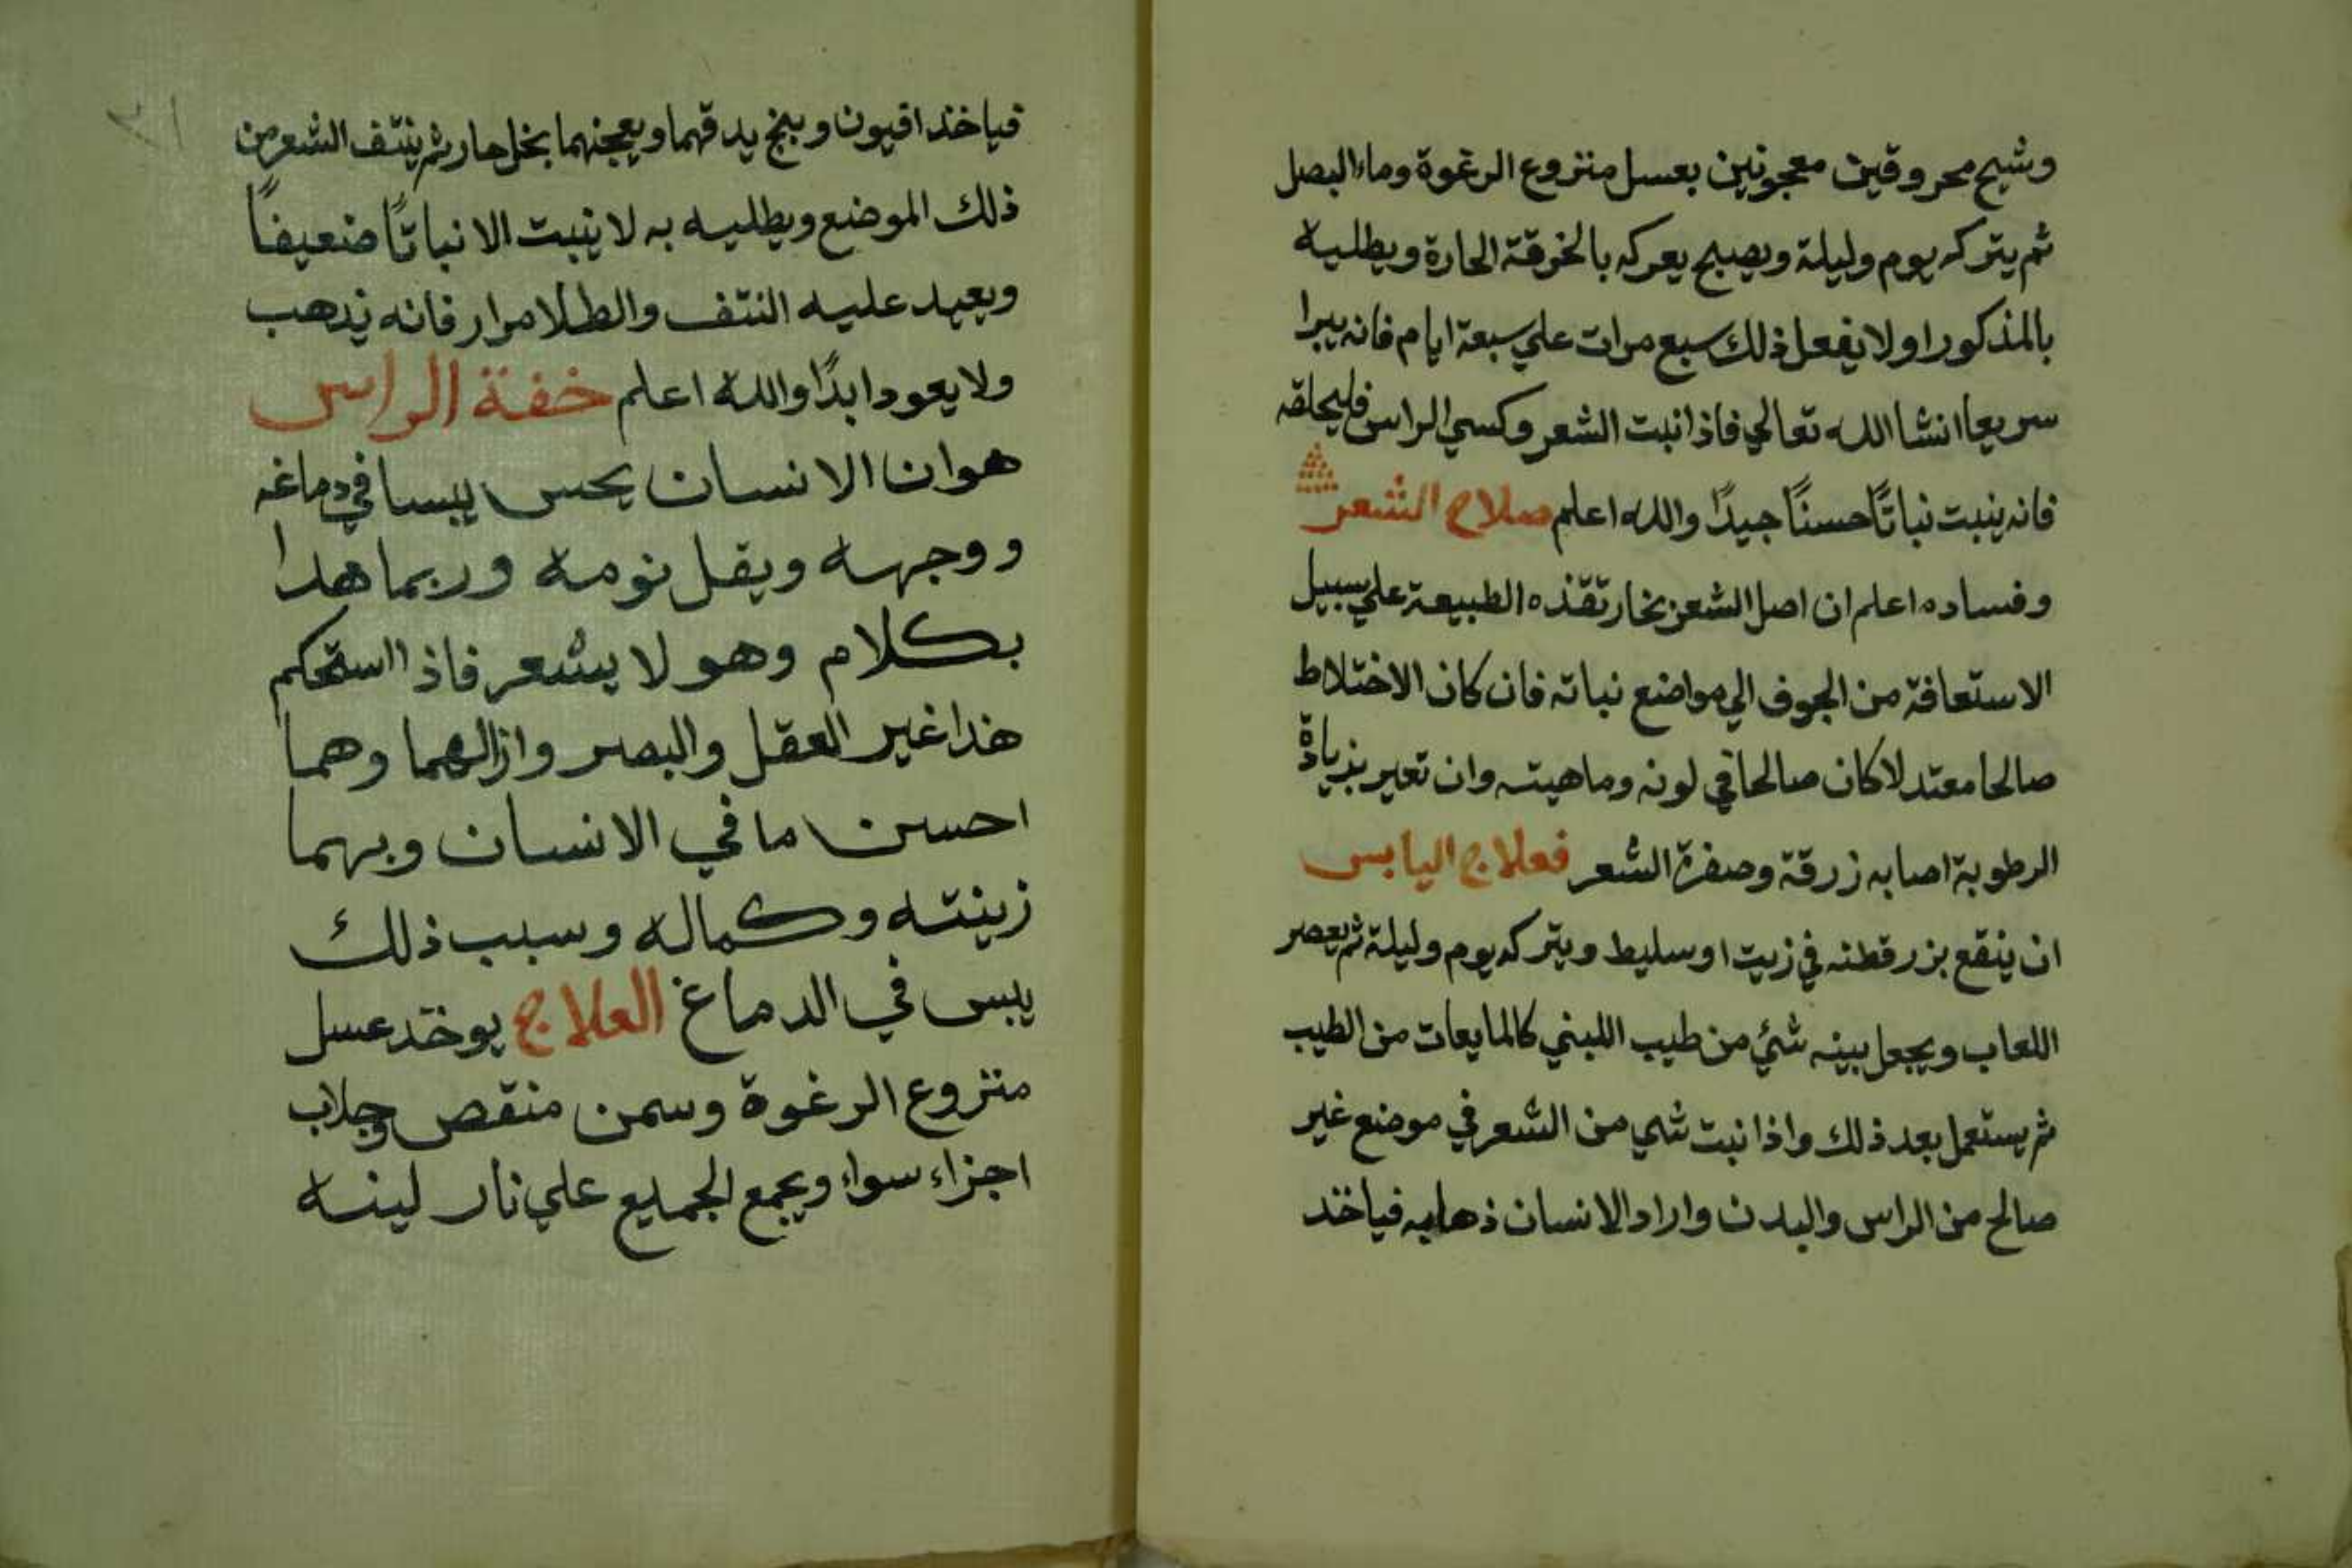 وشيح محروقين معجونين بعسل منزوع الرغوة وماء البصل
ثم يتركه يوم وليلة ويصبح يعركه بالخرقة الحارة ويطليه
بالمذكور اولا يفعل ذلك سبع مرات علي سبعة ايام فانه يبرا
سريعا انشا الله تعالي فاذا نبت الشعر وكسي الراس فليحلقه
فانه ينبت نباتًا حسنًا جيدًا والله اعلم صلاح الشعر
وفساده اعلم ان اصل الشعر بخار تقذه الطبيعة علي سبيل
الاستعافة من الجوف الي مواضع نباته فان كان الاختلاط
صالحا معتدلا كان صالحا في لونه وماهيته وان تعير بزيادة
الرطوبة اصابه زرقة وصفرة الشعر فعلاج اليابس
ان ينقع بزر قطنه في زيت او سليط ويتركه يوم وليلة ثم يعصر
اللعاب ويجعل بينه شئ من طيب اللبني كالمايعات من الطيب
ثم يستعمل بعد ذلك واذا نبت شي من الشعر في موضع غير
صالح من الراس والبدن واراد الانسان ذهابه فياخذ
فياخذ افيون وبنج يدقهما ويعجنهما بخل حار ثم ينتف الشعر من
ذلك الموضع ويطليه به لا ينبت الا نباتًا ضعيفًا
ويعيد عليه النتف والطلا مرار فانه يذهب
ولا يعود ابدًا والله اعلم خفة الراس
هو ان الانسان يحس يبسا في دماغه
ووجهه ويقل نومه وربما هدا
بكلام وهو لا يشعر فاذا استحكم
هذا غير العقل والبصر وازالهما وهما
احسن ما في الانسان وبهما
زينته وكماله وسبب ذلك
يبس في الدماغ العلاج يوخذ عسل
منزوع الرغوة وسمن منقص وجلاب
اجزاء سواء ويجمع الجميع علي نار لينه